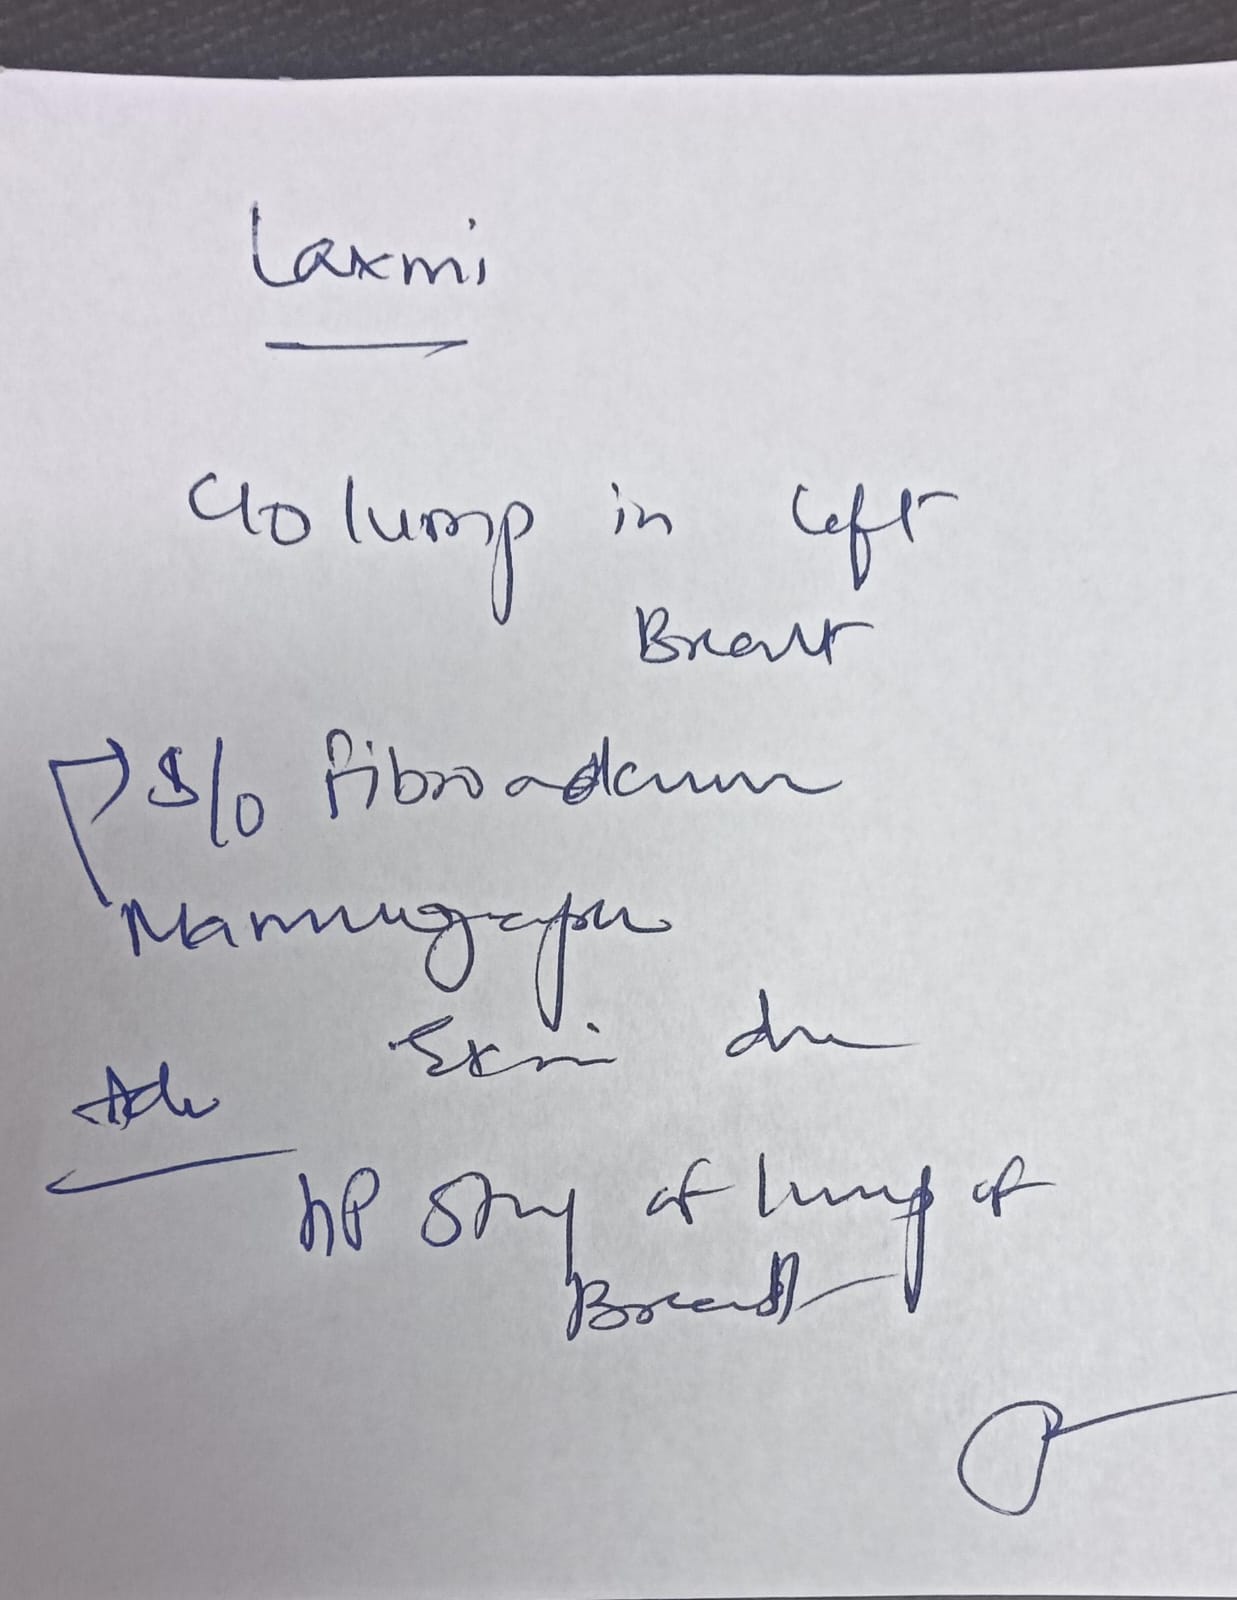 Laxmi
C/o lump in left
Breast
S/o fibroadenoma
Mammography
Adv
HP study of lump of
Breast